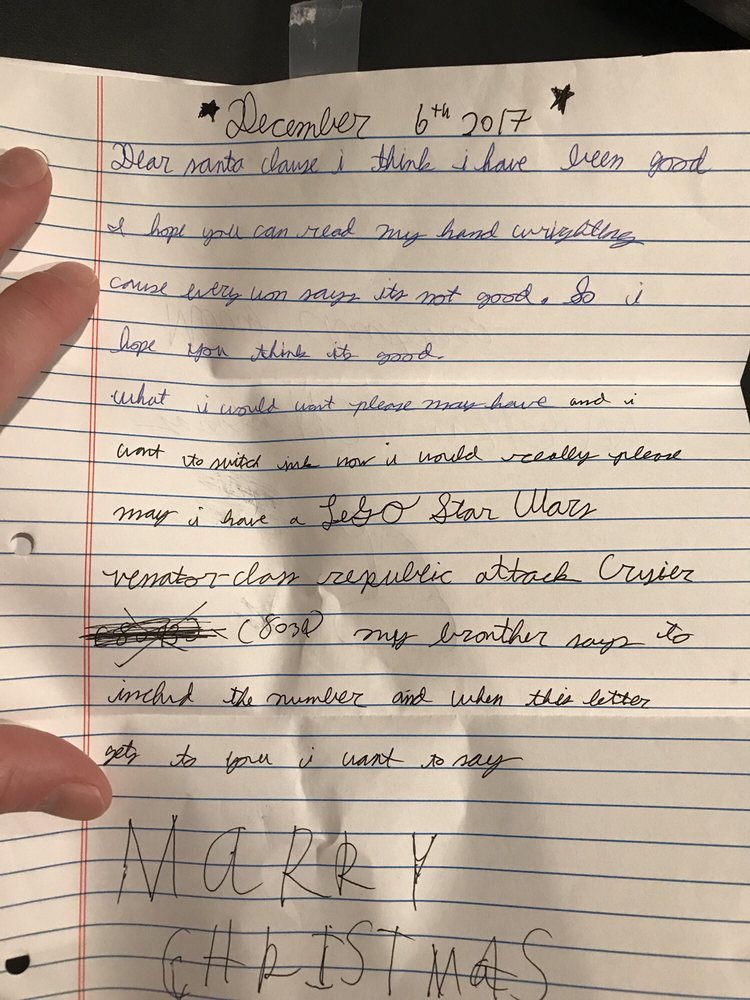 December 6th 2017
Dear santa clause i think i have been good
I hope you can read my hand wrighting
cause every won says its not good. So i
hope you think its good.
what i would wont please may have and i
want to switch ink now i would really please
may i have a LeGO Star Wars
venator-class republic attack Crusier
(8039) my bronther says to
includ the number and when this letter
gets to you i want to say
MARRY
CHRISTMAS